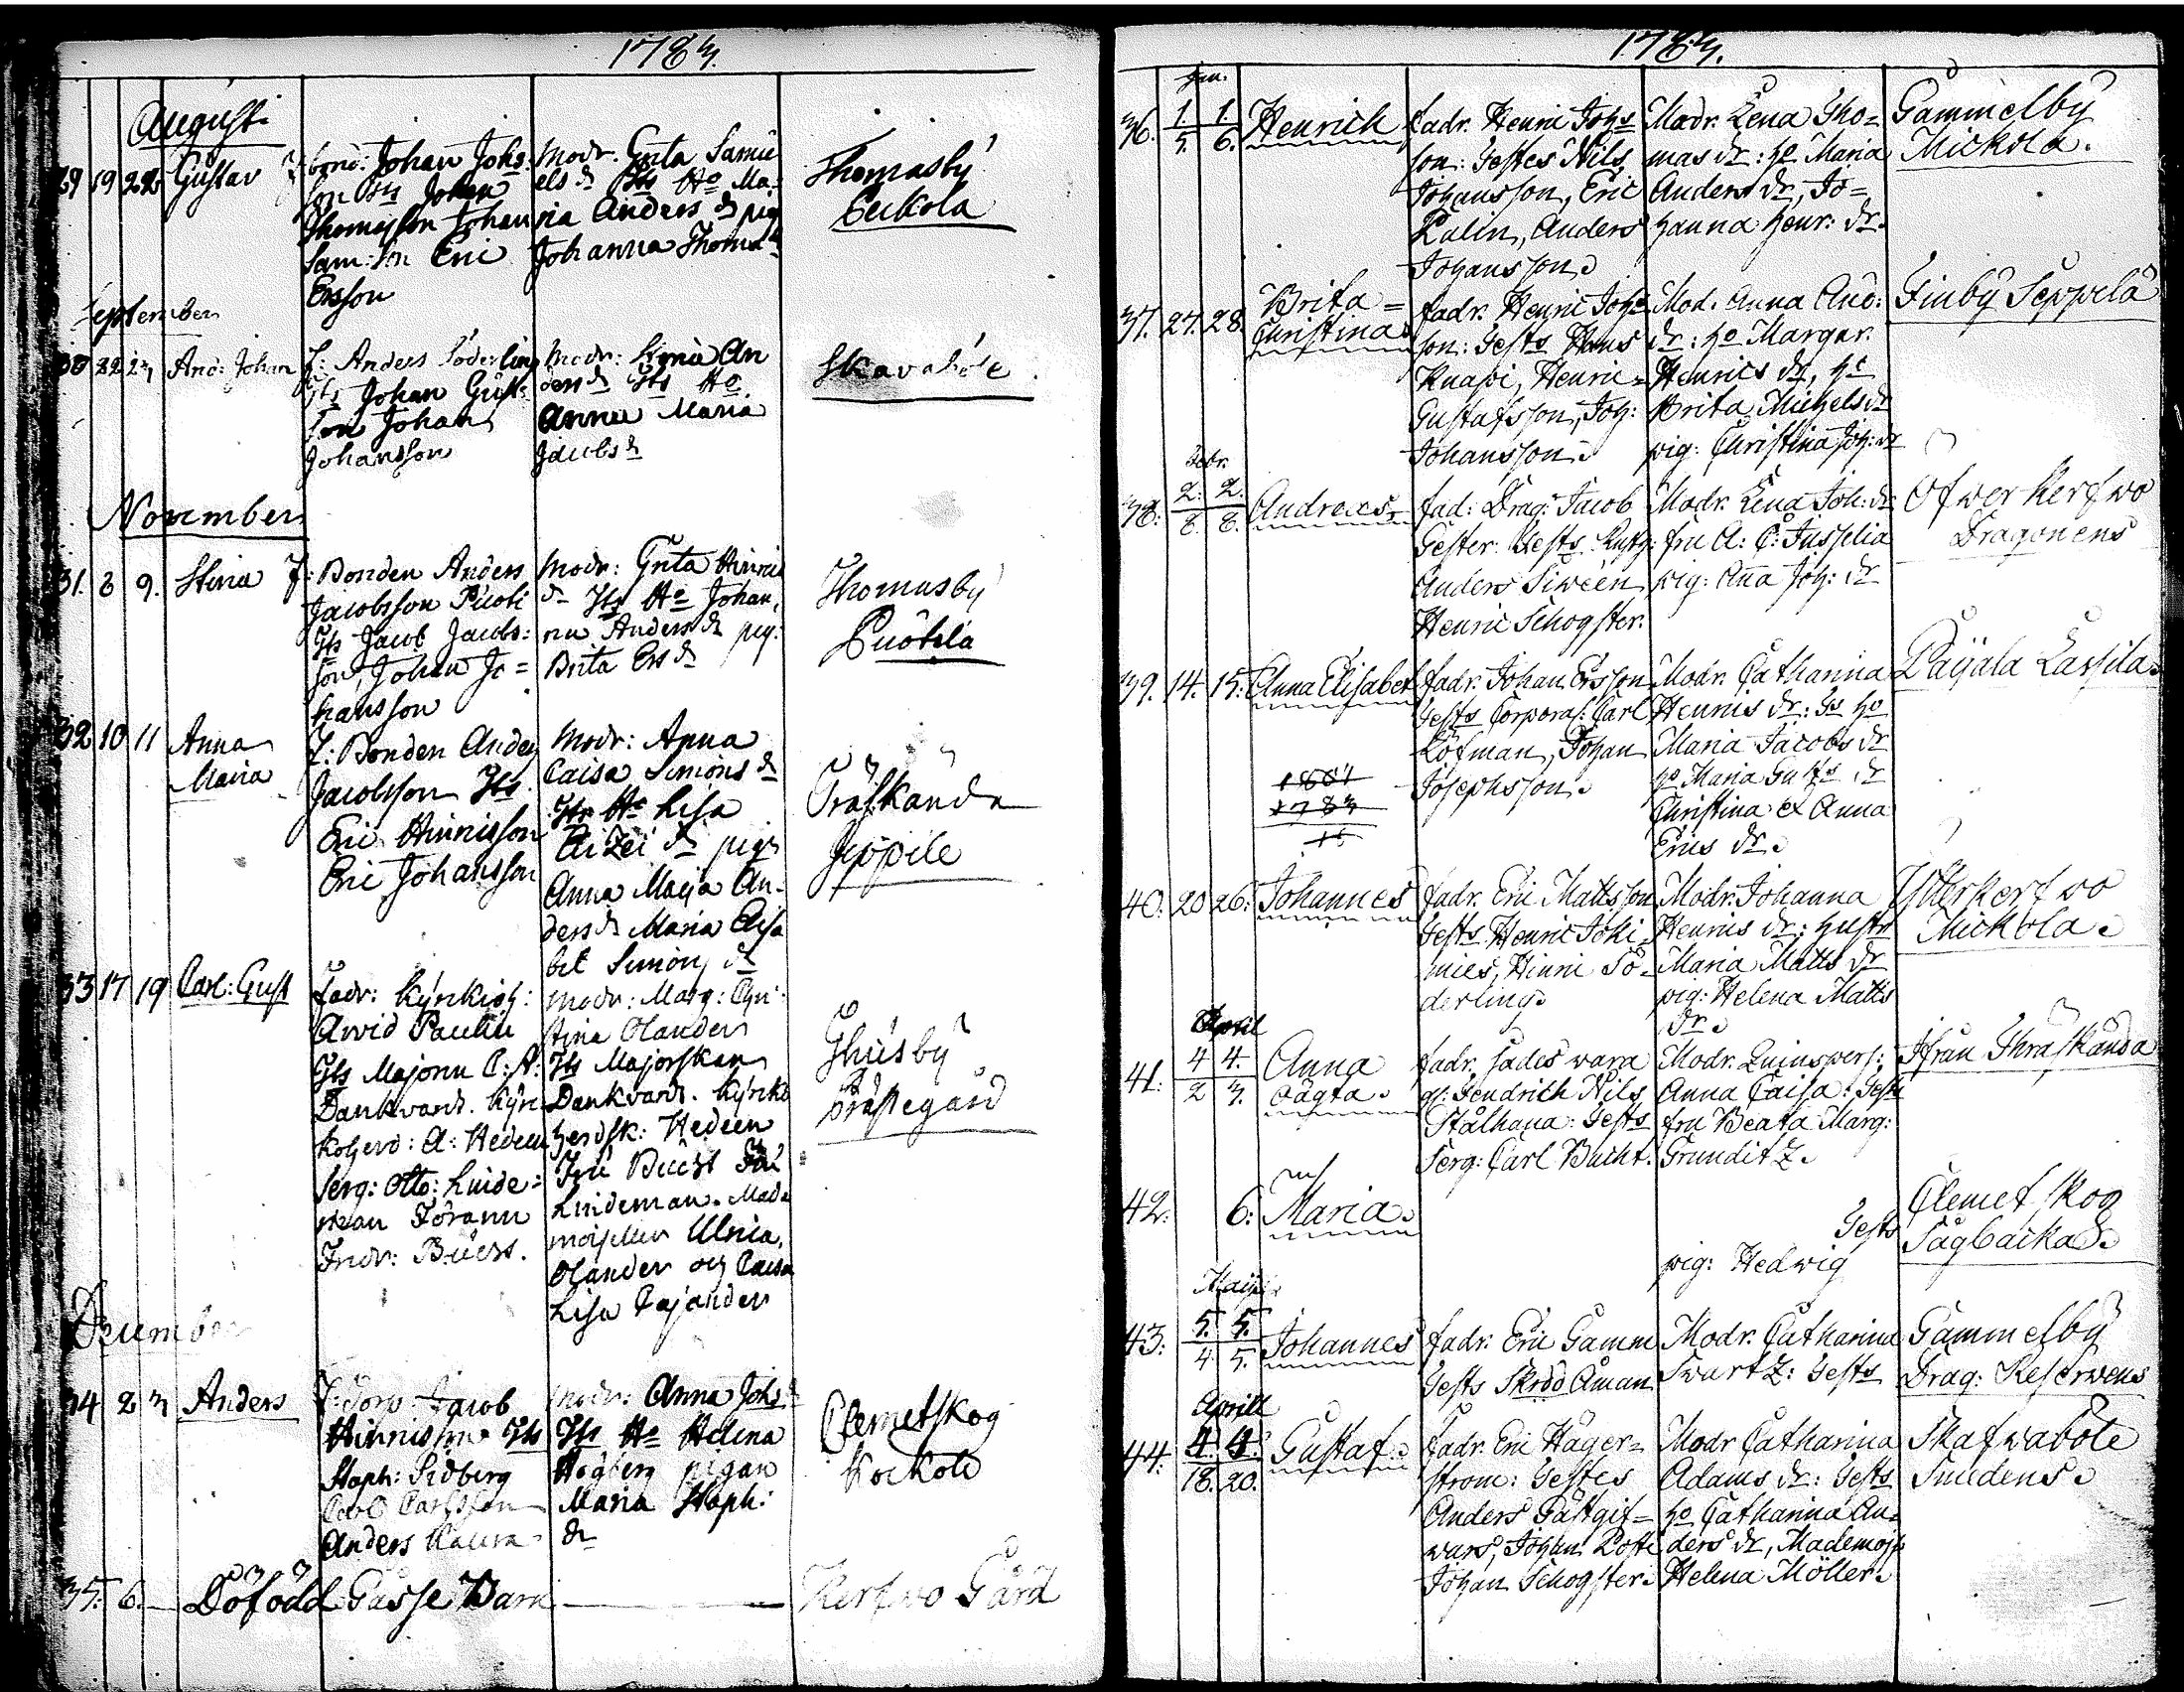 1783.
Augusti
29 19 22 Gustav
F: bond: Johan Johs:
son Johan
Thomasson Johan
Sam: son Eric
Ersson
Modr. Greta Samu
els dr Hu Ma
ria Anders dr pig
Johanna Thomas
Thomasby
September
30 22 23 And: Johan
F: Anders Söderling
Johan Gust:
son Johan
Johansson
Modr: Stina An
ders dr
Anna Maria
Jacobs dr
Skavaböle
November
31. 8 9. Stina
F: Bonden Anders
Jacobsson
Jacob Jacobs:
son, Johan Jo=
hansson
Modr: Greta Hinrics
dr Johan,
na Anders dr pig:
Brita Ers dr
Thomasby
32 10 11 Anna
Maria
F: Bonden Anders
Jacobsson
Eric Hinricsson
Eric Johansson
Modr: Anna
Caisa Simons dr
Lisa
dr pigr
Anna Maja An=
ders dr Maria Elisa
bet Simons dr
Träskända
Jeppile
33 17 19 Carl: Gust
Fadr:
Arvid Paulin
Majorn C: A:
Dankvard. Kyr=
koherd: A: Hedeen
Serg: Otto: Linde=
man
Modr: Marg: Chri
stina Olander
Majorskan
Dankvard. Kyrko
herdsk: Hedeen
Fru
Lindeman. Made
moiseller Ulrica
Olander och Caisa
Lisa Cajander
Ghusby
prästegård
December
34 2 3 Anders
F: Torp: Jacob
Hinricsson
Staph: Sedberg
Carl Carlsson
Anders
Modr: Anna Johs:
Helena
Högberg pigan
Maria Staph:
dr
Clemetskog
Kockole
35. 6. Döfödd Gosse Barn Kerfwo Gård
1783.
Jan.
36. 1. 1. Henrich
5. 6.
fadr. Henric Johs
son: Testes Nils
Johansson, Eric
Anders
Johansson.
Modr. Lena Tho=
mas dr: ho Maria
Anders dr, Jo=
hanna Henr: dr.
Gammelby
Mickola.
37. 27. 28. Brita=
Christina.
fadr. Henric Johs
son: Tests Hans
Knapi, Henric
Gustafsson, Joh:
Johansson.
Mod. Anna And:
dr: ho Margar.
Henrics dr, ho
Brita Michels dr
pig: Christina Joh: dr
Finby Seppelä
Febr.
38. 2. 2. Andreas
8. 8.
fad: Drag: Jacob
Gester. Tests
Anders Siween
Henric Schogster.
Modr. Lena Joh: dr
fru A: C: Jusselia
pig: Anna Joh: dr
Ofwerkerfwo
Dragonens
39. 14. 15. Anna Elisabet
fadr. Johan Ersson
Tests Corporal: Carl
Löfman, Johan
Josephsson.
Modr. Catharina
Henrics dr: Ts ho
Maria Jacobs dr
ho Maria Gustfs dr
Christina & Anna
Erics dr.
Lassila.
1801
1783
40. 20 26. Johannes
fadr. Eric Mattsson
Tests. Henric Joki
mies, Hinric Sö=
derling.
Modr. Johanna
Henrics dr: hustr
Maria Matts dr
pig: Helena Matts
dr.
Ytterkerfwo
Mickola.
April
41. 4 4. Anna
2 3. Agta.
fadr.
Fendrich Nils
Stålhana: Tests
Serg: Carl Bucht.
Modr.
Anna Caisa: Tests
fru Beata Marg:
Grunditz.
ifrån Thräskända
42. 6. Maria.
Tests
pig: Hedwig
Clemetskog
Sågbacka.
Maij
43. 5. 5. Johannes
4. 5.
fadr. Eric Gamm
Tests Skrdd Åman
Modr. Catharina
Swartz: Tests
Gammelby
Drag: Reserwens
Aprill
44. 4. 4. Gustaf.
18. 20.
fadr. Eric Hager=
strom: Testes
Anders Gästgif=
wars, Johan
Johan Schogster.
Modr Catharina
Adams dr: Tests
ho Catharina An=
ders dr, Mademois.
Helena Möller.
Skafwabole
Smedens.